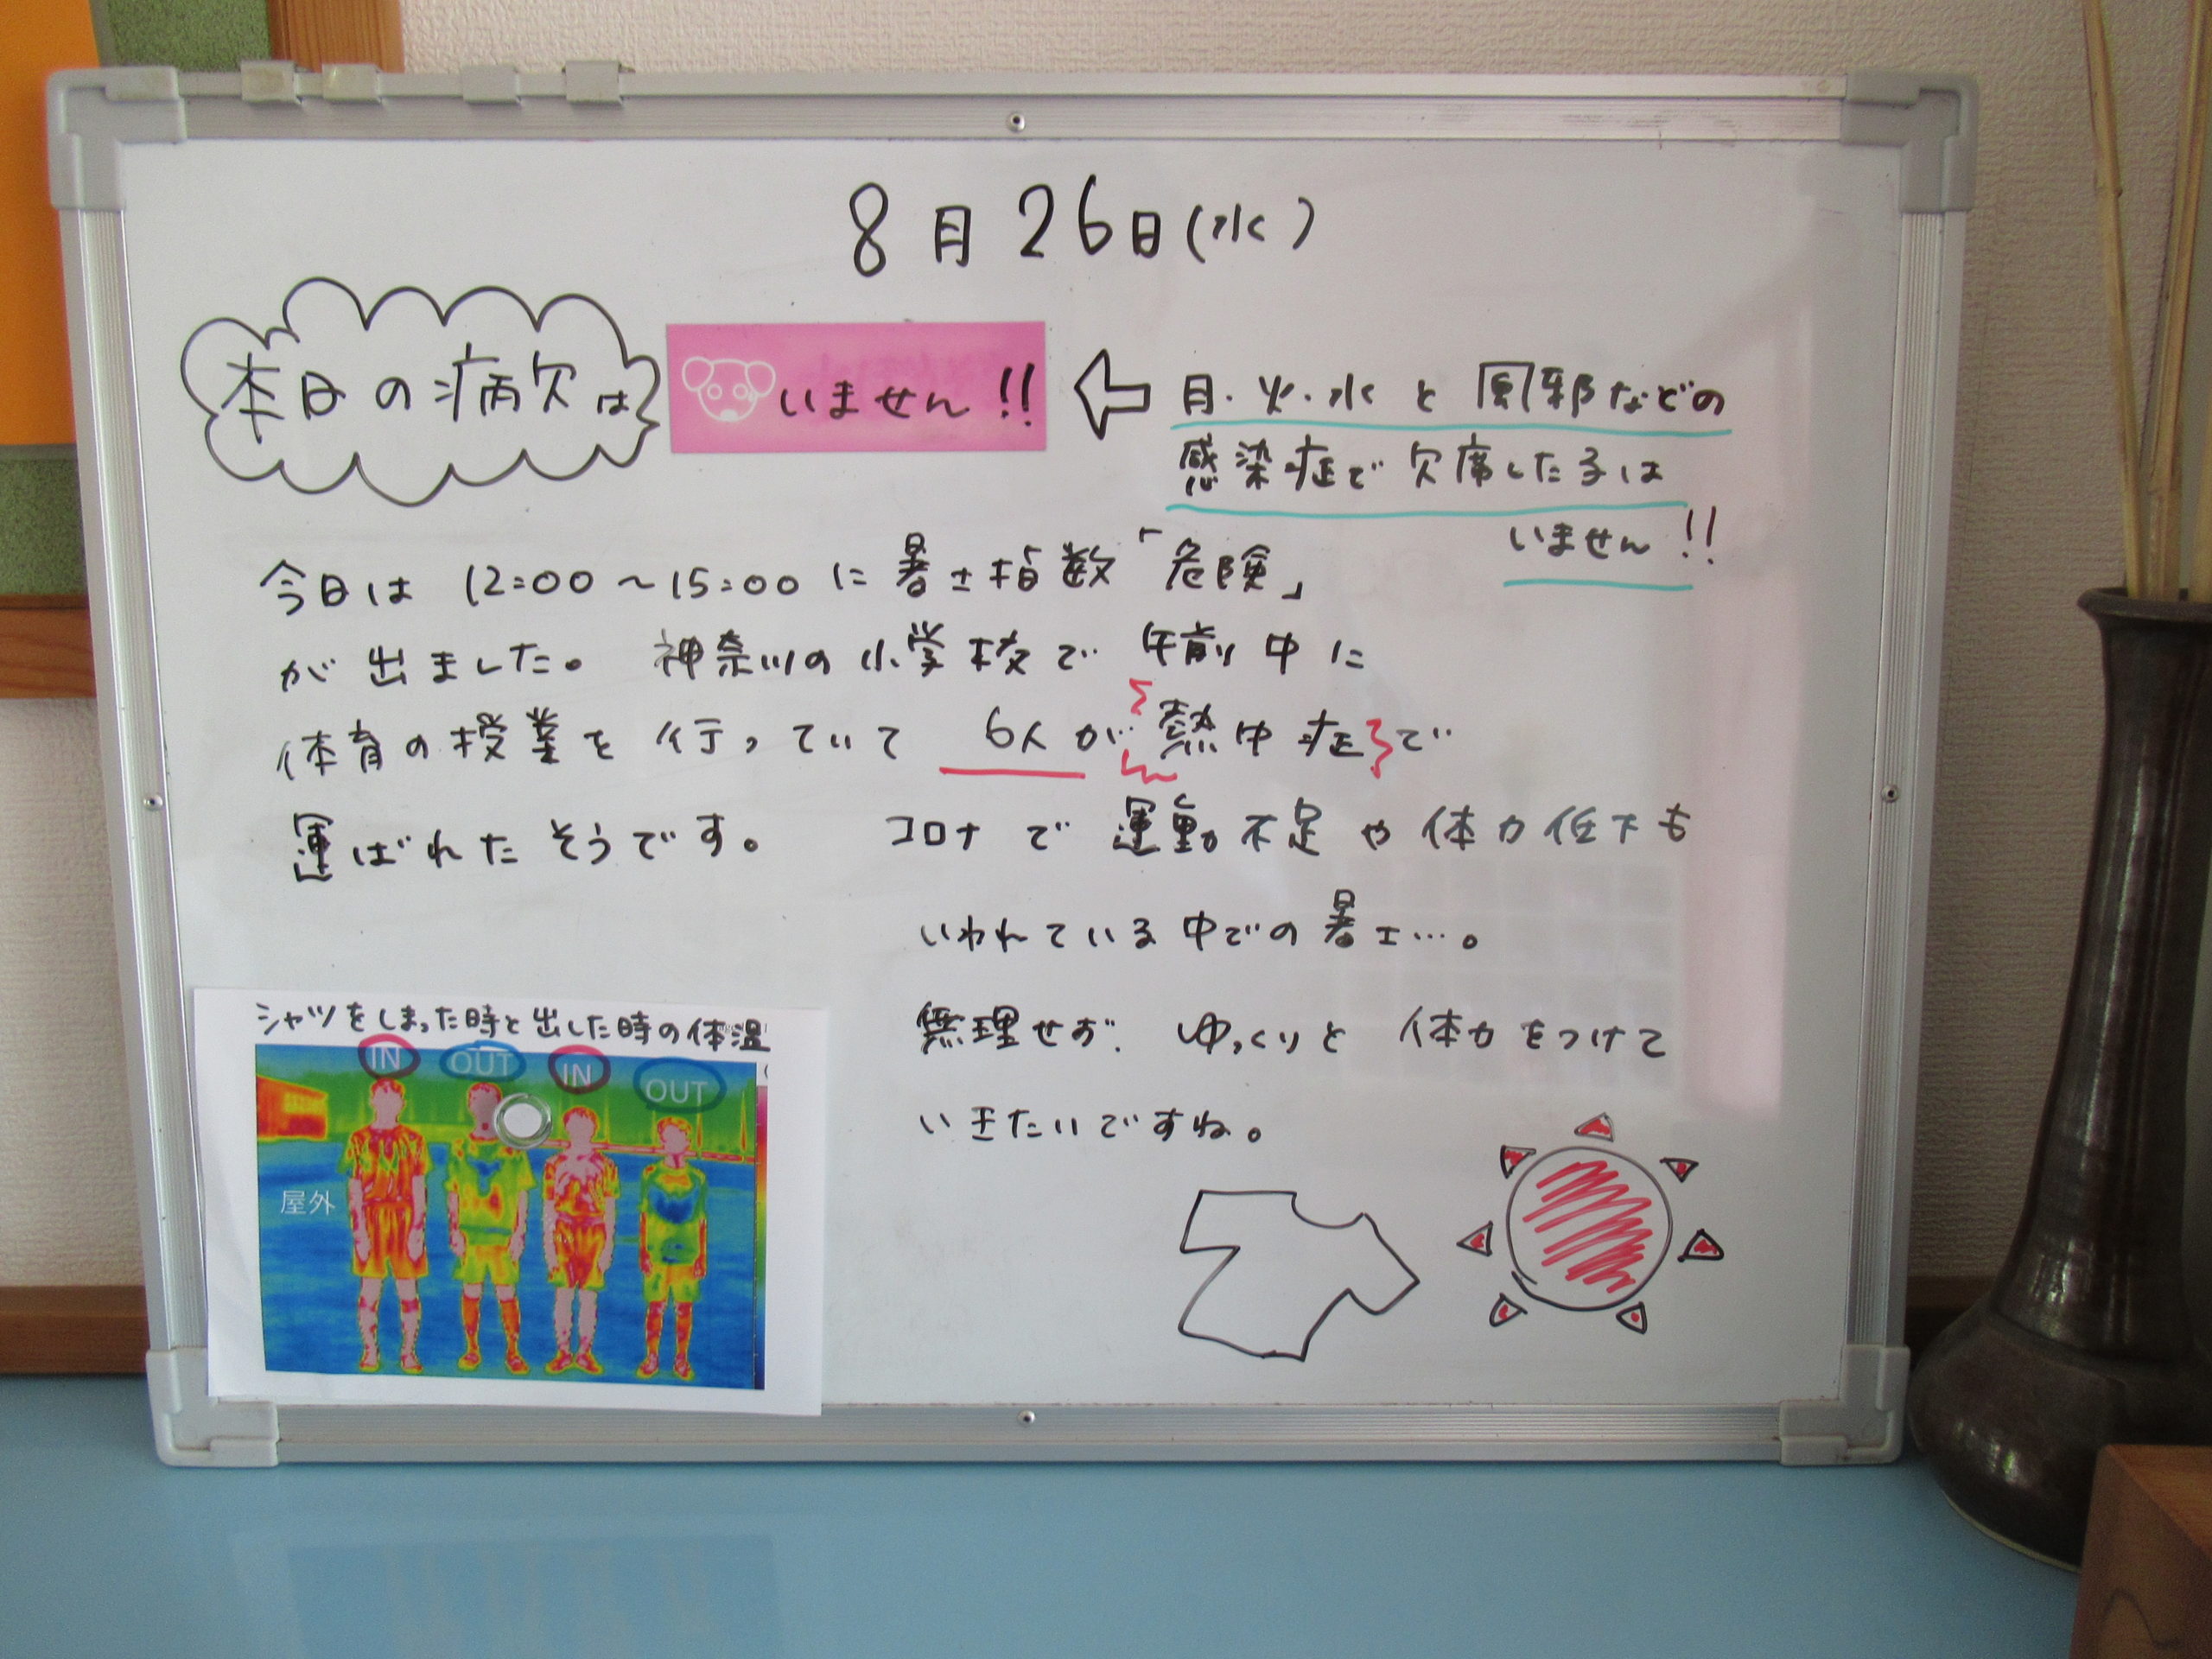 8月26日(水)
本日の病欠は
いません!!
月・火・水と風邪などの
感染症で欠席した子は
いません!!
今日は 12:00～15:00に暑さ指数「危険」
が出ました。神奈川の小学校で午前中に
体育の授業を行っていて 6人が熱中症で
運ばれたそうです。 コロナで運動不足や体力低下も
いわれている中での暑さ…。
無理せず、ゆっくりと 体力をつけて
いきたいですね。
シャツをしまった時と出した時の体温
IN OUT IN OUT
屋外